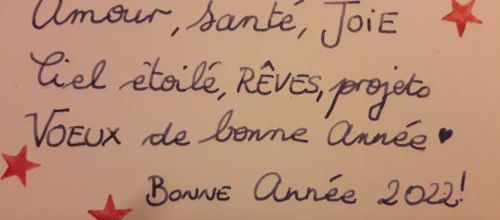 Amour, santé, JOiE
Ciel étoilé, RÊVES, projets
VOEUX de bonne Année ♥
BONNE Année 2022!